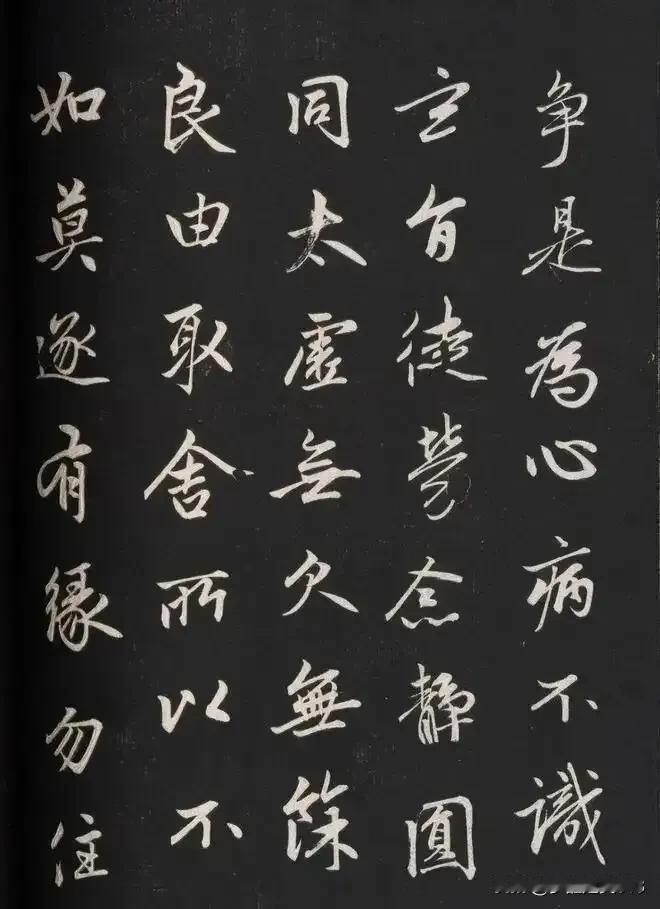 争是為心病不識
玄旨徒勞念靜圓
同太虛無欠無餘
良由取舍所以不
如莫遂有緣勿住